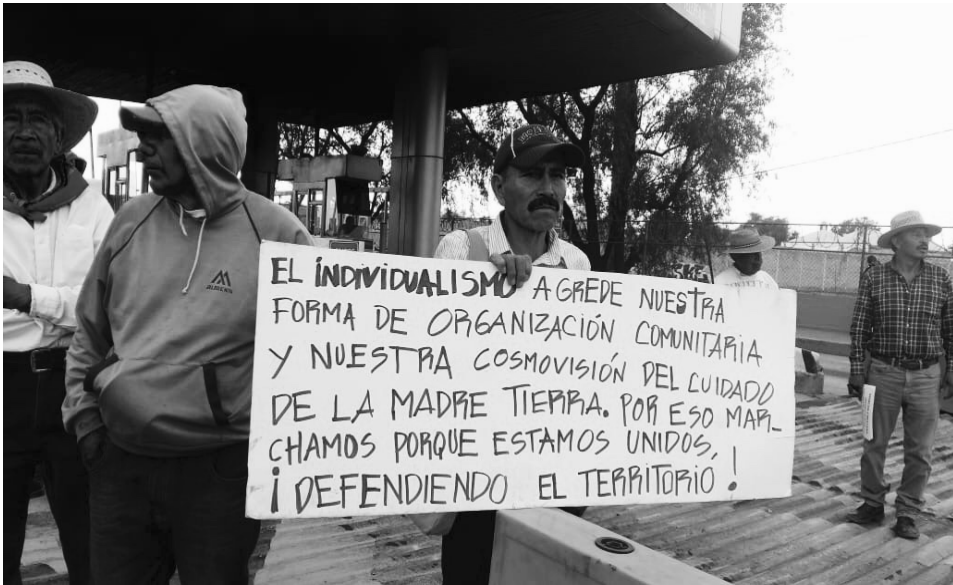 EL INDIVIDUALISMO AGREDE NUESTRA
FORMA DE ORGANIZACIÓN COMUNITARIA
Y NUESTRA COSMOVISIÓN DEL CUIDADO
DE LA MADRE TIERRA. POR ESO MAR-
CHAMOS PORQUE ESTAMOS UNIDOS,
¡DEFENDIENDO EL TERRITORIO!